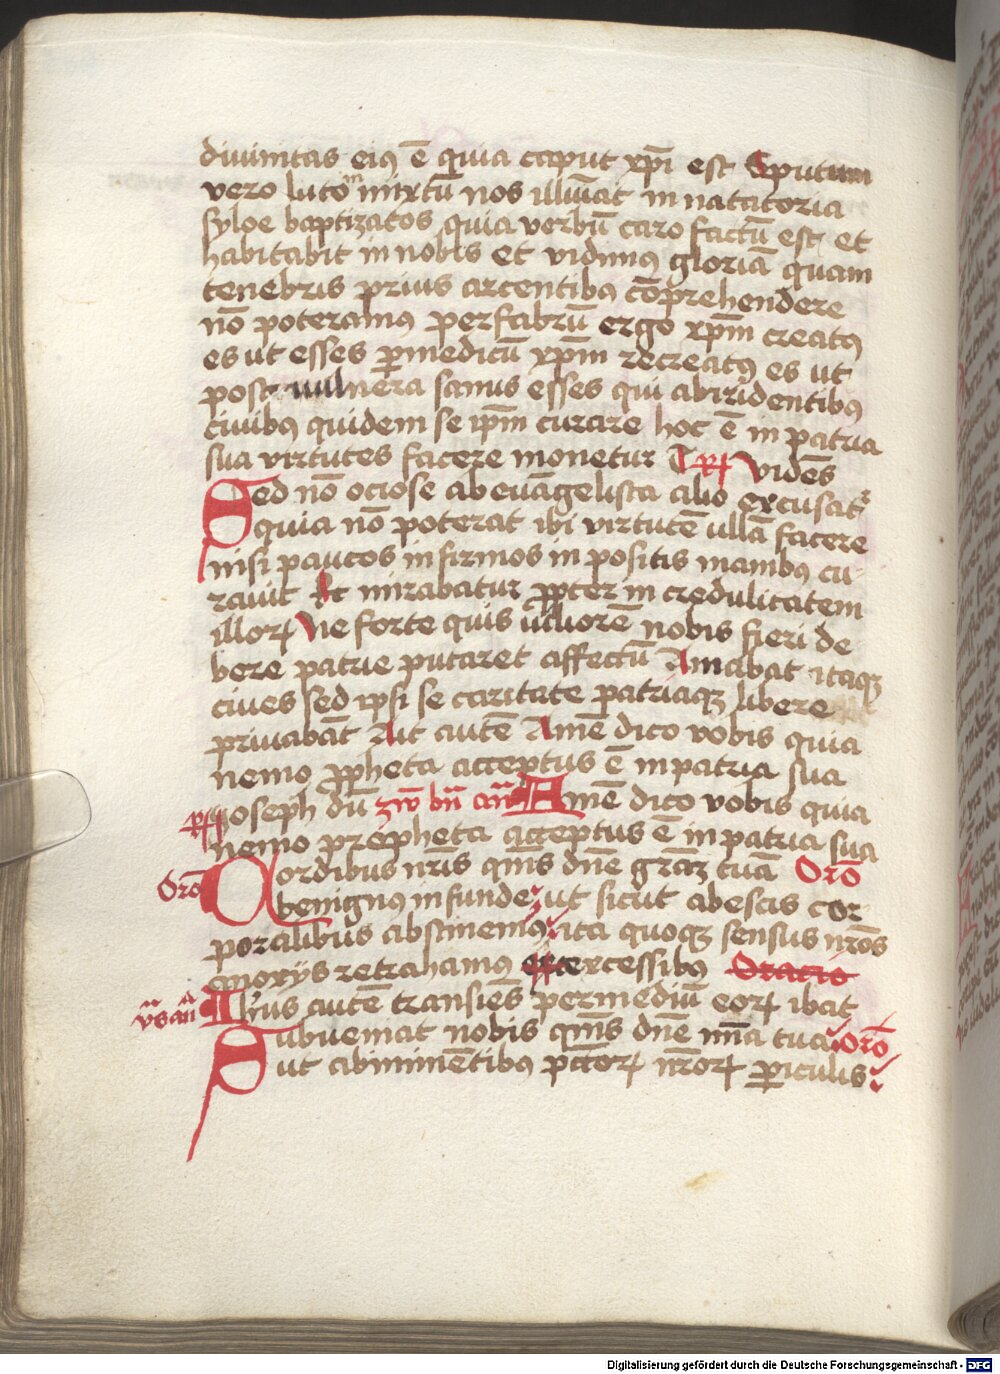 diuinitas eiꝰ ē quia caput xp̄i est Sputum
vero luto mixtū nos illūīat in natatoria
syloe baptizatos quia verbū caro factū est et
habitabit in nobis et vidimꝰ gloriā quam
tenebris prius arcentibꝰ cōprehendere
nō poteramꝰ per fabrū ergo xp̄m creatꝰ
es ut esses ꝑ medicū xp̄m recreatꝰ es ut
post vulnera sanus esses qui ab iridentibꝰ
ciuibꝰ quidem se ip̄m curare hoc ē in patria
sua virtutes facere monetur videns
Sed nō ociose ab euāgelista alio excusatr
quia nō poterat ibi virtutē ullā facere
nisi paucos infirmos in positis manibꝰ cu
rauit Et mirabatur ꝓpter in credulitatem
illoꝝ Ne forte quis uiliorē nobis fieri de
bere patrie putaret affectū Amabat itaqꝫ
ciues sed ipsi se caritate patriaqꝫ libere
priuabāt Ait autē Amē dico vobis quia
nemo ꝓpheta acceptus ē in patria sua
Joseph dū zw bn̄ an̄ Amē dico vobis quia
nemo propheta acceptus ē in patria sua
Oro Cordibus nris qm̄s dn̄e graꝫ tuā Oro
benignꝰ infunde ut sicut ab escis cor
poralibus abstinemꝰ ita quoqꝫ sensus nros
noxys retrahamꝰ excessibꝰ Oracio
vs an̄ Ihūs autē transiēs per mediū eoꝝ ibat
Subueniat nobis qm̄s dn̄e mīa tua oro
ut ab iminētibꝰ pctoꝝ nr̄oꝝ ꝑiculis
Digitalisierung gefördert durch die Deutsche Forschungsgemeinschaft - DFG